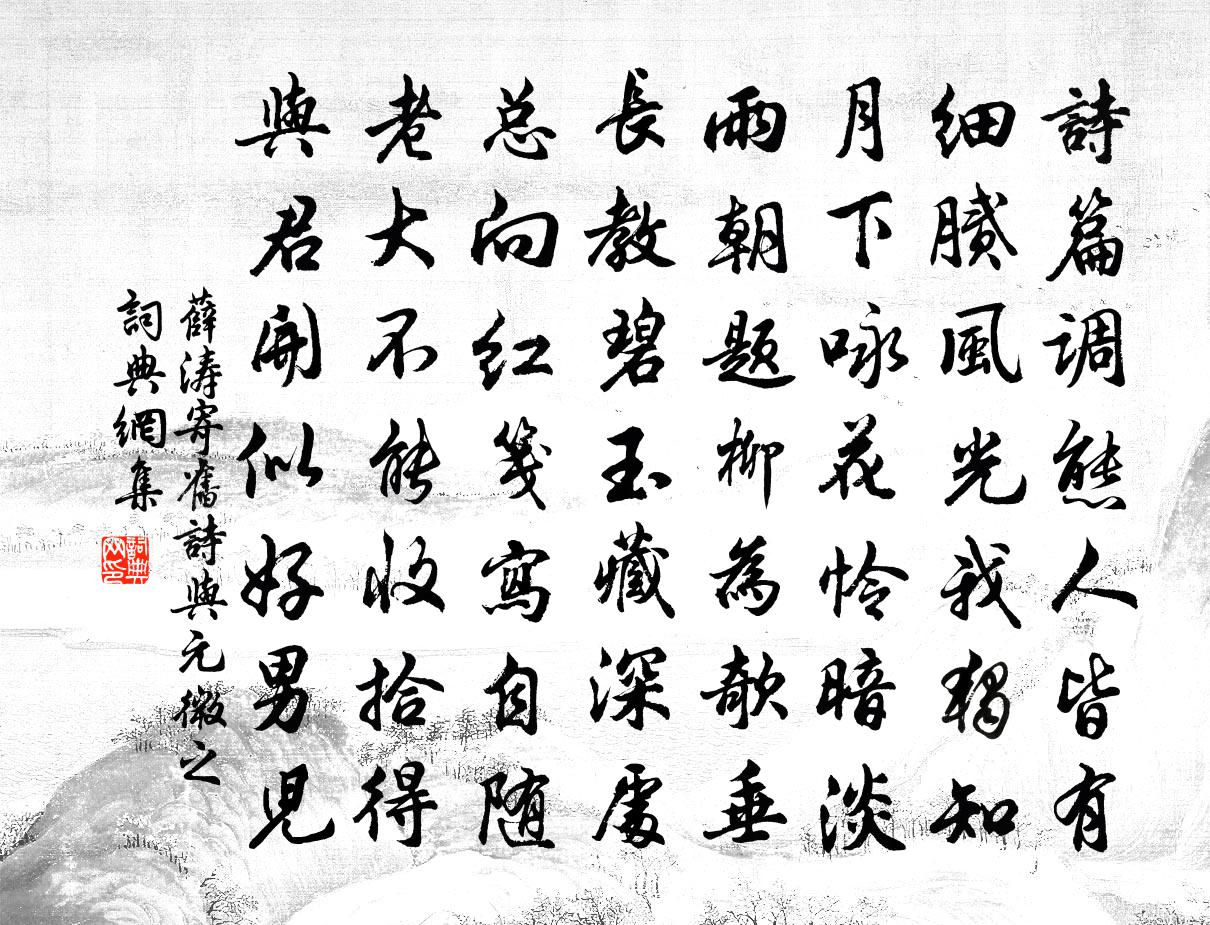 詩篇調態人皆有
细膩風光我獨知
月下咏花怜暗淡
雨朝题柳為欹垂
長教碧玉藏深處
总向红笺寫自随
老大不能收拾得
與君開似好男兒
薛涛寄舊詩與元微之
詞典網集
詞典网印